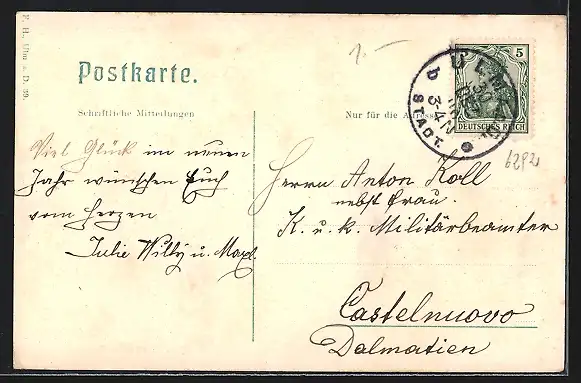 F. H., Ulm a. D. 39.
Postkarte.
Schriftliche Mitteilungen
Nur für die Adresse
Viel Glück im neuen
Jahr wünschen Euch
vom Herzen
Julie Willy u. Maxl.
5
DEUTSCHES REICH
ULM
b
30
3-4 N
STADT.
1.-
6292
Herrn Anton Koll
nebst Frau.
K. u. k. Militärbeamter
Castelnuovo
Dalmatien